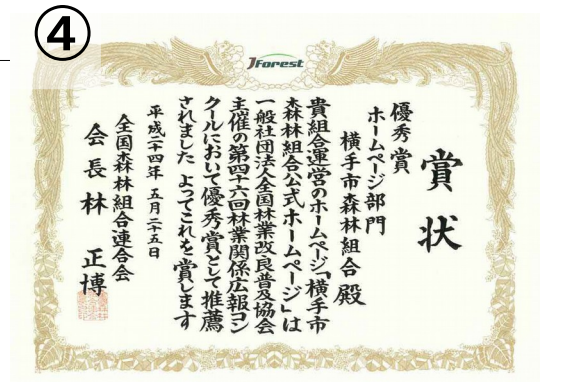 ④
JForest
賞状
優秀賞
ホームページ部門
横手市森林組合殿
貴組合運営のホームページ「横手市
森林組合公式ホームページ」は
一般社団法人全国林業改良普及協会
主催の第四十六回林業関係広報コン
クールにおいて優秀賞として推薦
されました よってこれを賞します
平成二十四年 五月二十五日
全国森林組合連合会
会長 林 正博